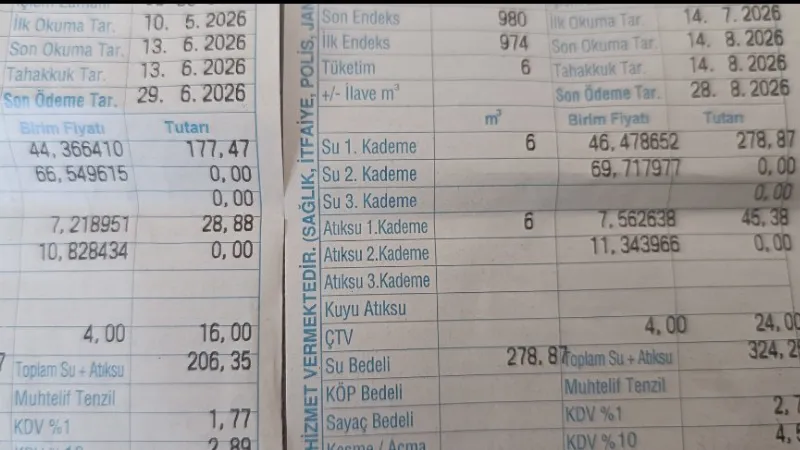 İlk Okuma Tar. 10. 5. 2026
Son Okuma Tar. 13. 6. 2026
Tahakkuk Tar. 13. 6. 2026
Son Ödeme Tar. 29. 6. 2026
Birim Fiyatı Tutarı
44,366410 177,47
66,549615 0,00
0,00
7,218951 28,88
10,828434 0,00
4,00 16,00
Toplam Su + Atıksu 206,35
Muhtelif Tenzil
KDV %1 1,77
2,89
HİZMET VERMEKTEDİR. (SAĞLIK, İTFAİYE, POLİS,
Son Endeks 980 İlk Okuma Tar. 14. 7. 2026
İlk Endeks 974 Son Okuma Tar. 14. 8. 2026
Tüketim 6 Tahakkuk Tar. 14. 8. 2026
+/- İlave m³ Son Ödeme Tar. 28. 8. 2026
m³ Birim Fiyatı Tutarı
Su 1. Kademe 6 46,478652 278,87
Su 2. Kademe 69,717977 0,00
Su 3. Kademe 0,00
Atıksu 1.Kademe 6 7,562638 45,38
Atıksu 2.Kademe 11,343966 0,00
Atıksu 3.Kademe
Kuyu Atıksu
ÇTV 4,00 24,00
Su Bedeli 278,87 Toplam Su + Atıksu 324,2
KÖP Bedeli Muhtelif Tenzil
Sayaç Bedeli KDV %1 2,7
Kesme / Açma KDV %10 4,5